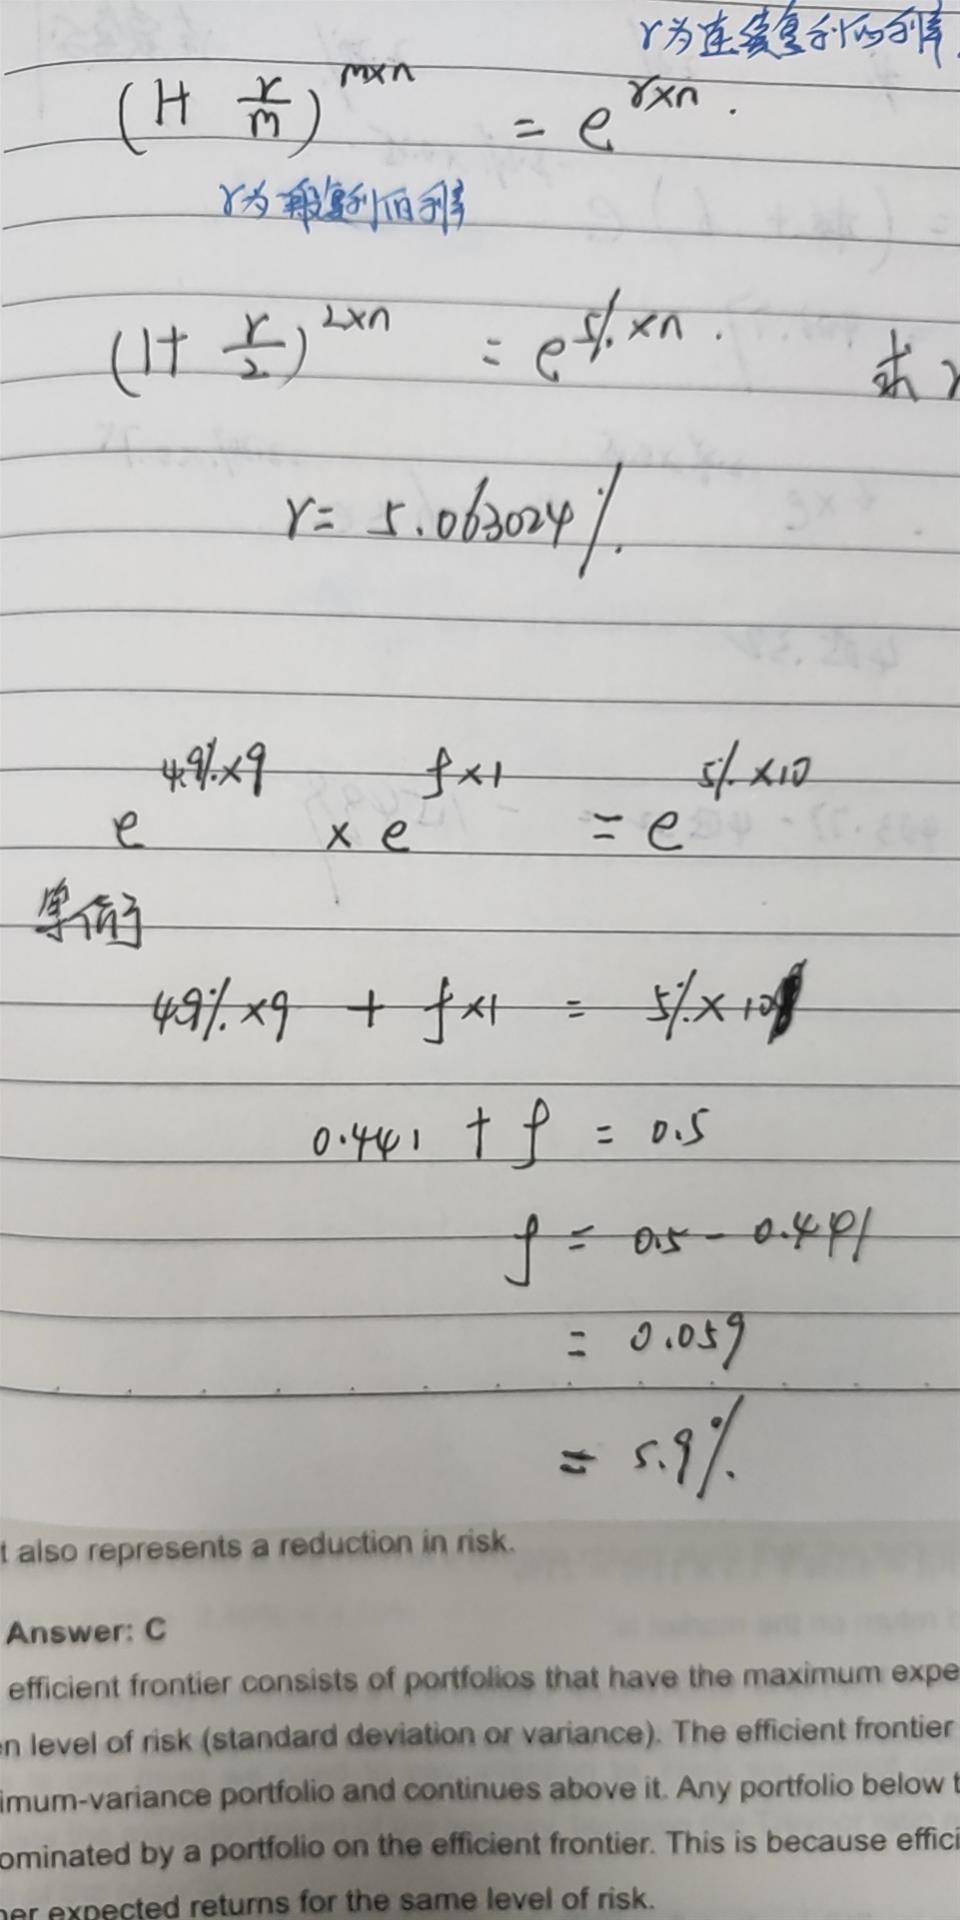 r为连续复利的利率
(1+ r/m)^m×n = e^r×n.
r为一般复利的利率
(1+ r/2)^2×n = e^5%×n. 求r
r= 5.063024%.
e^4.9%×9 × e^f×1 = e^5%×10
等价于
4.9%×9 + f×1 = 5%×10
0.441 + f = 0.5
f = 0.5 - 0.441
= 0.059
= 5.9%.
t also represents a reduction in risk.
Answer: C
efficient frontier consists of portfolios that have the maximum expe
en level of risk (standard deviation or variance). The efficient frontier
imum-variance portfolio and continues above it. Any portfolio below t
ominated by a portfolio on the efficient frontier. This is because effici
her expected returns for the same level of risk.